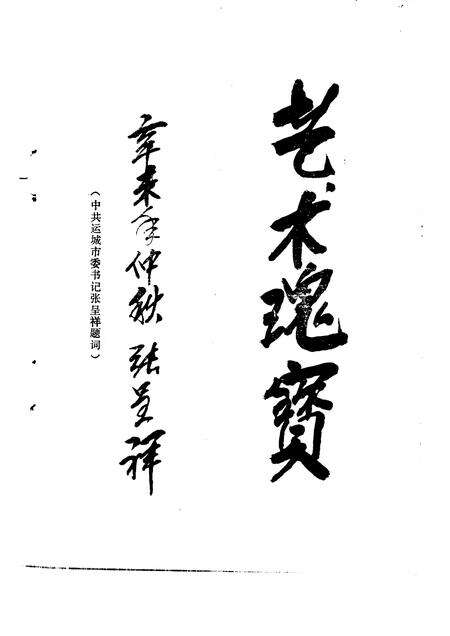 艺术瑰寳
辛未年仲秋 张呈祥
（中共运城市委书记张呈祥题词）